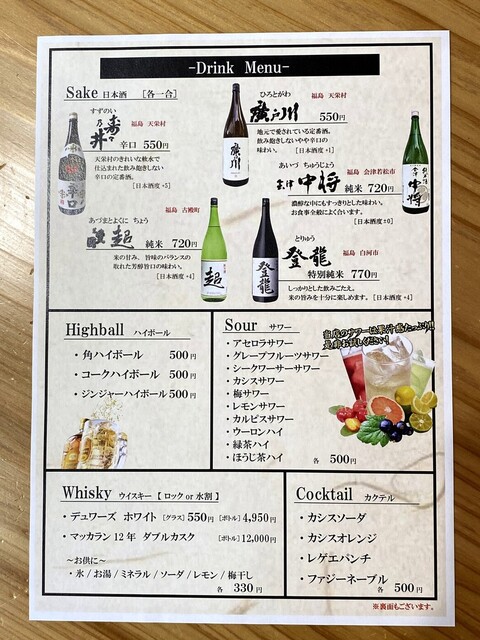 -Drink Menu-
Sake 日本酒 [各一合]
すずのい
寿々乃井
福島 天栄村
辛口 550円
天栄村のきれいな軟水で
仕込まれた飲み飽きしない
辛口の定番酒。
[日本酒度+5]
ひろとがわ
廣戸川
福島 天栄村
550円
地元で愛されている定番酒。
飲み飽きしないやや辛口の
味わい。 [日本酒度+1]
あいづ ちゅうじょう
会津中将
福島 会津若松市
純米 720円
濃醇な中にもすっきりとした味わい。
お食事全般によく合います。
[日本酒度±0]
あづまとよくに ちょう
超
福島 古殿町
純米 720円
米の甘み、旨味のバランスの
取れた芳醇旨口の味わい。
[日本酒度+4]
とりゅう
登龍
福島 白河市
特別純米 770円
しっかりとした飲みごたえ。
米の旨みを十分に楽しめます。[日本酒度+4]
Highball ハイボール
・角ハイボール 500円
・コークハイボール 500円
・ジンジャーハイボール 500円
Sour サワー
当店のサワーは果汁感たっぷり!!
是非お試しください!
・アセロラサワー
・グレープフルーツサワー
・シークワーサーサワー
・カシスサワー
・梅サワー
・レモンサワー
・カルピスサワー
・ウーロンハイ
・緑茶ハイ
・ほうじ茶ハイ
各 500円
Whisky ウイスキー【 ロック or 水割 】
・デュワーズ ホワイト [グラス] 550円 [ボトル] 4,950円
・マッカラン12年 ダブルカスク [ボトル] 12,000円
～お供に～
・氷 / お湯 / ミネラル / ソーダ / レモン / 梅干し
各 330円
Cocktail カクテル
・カシスソーダ
・カシスオレンジ
・レゲエパンチ
・ファジーネーブル
各 500円
※裏面もございます。